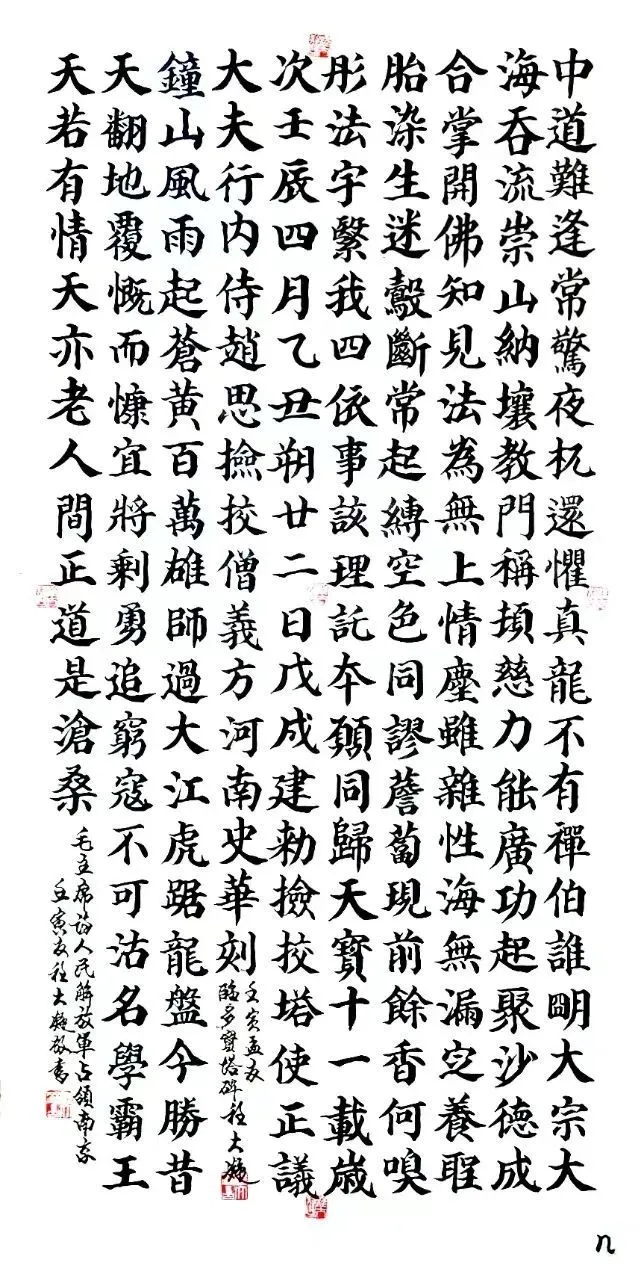 中道難逢常驚夜杌還懼真龍不有禪伯誰明大宗大
海吞流崇山納壤教門稱頓慈力能廣功起聚沙德成
合掌開佛知見法為無上情塵雖雜性海無漏定養聖
胎染生迷鷇斷常起縛空色同謬薝蔔現前餘香何嗅
彤法宇繫我四依事該理託本願同歸天寶十一載歲
次壬辰四月乙丑朔廿二日戊戌建勑撿挍塔使正議
大夫行内侍趙思撿挍僧義方河南史華刻
壬寅孟夏
臨多寶塔碑程大
鐘山風雨起蒼黃百萬雄師過大江虎踞龍盤今勝昔
天翻地覆慨而慷宜將剩勇追窮寇不可沽名學霸王
天若有情天亦老人間正道是滄桑
毛主席詩人民解放軍占領南京
壬寅夏程大敬書